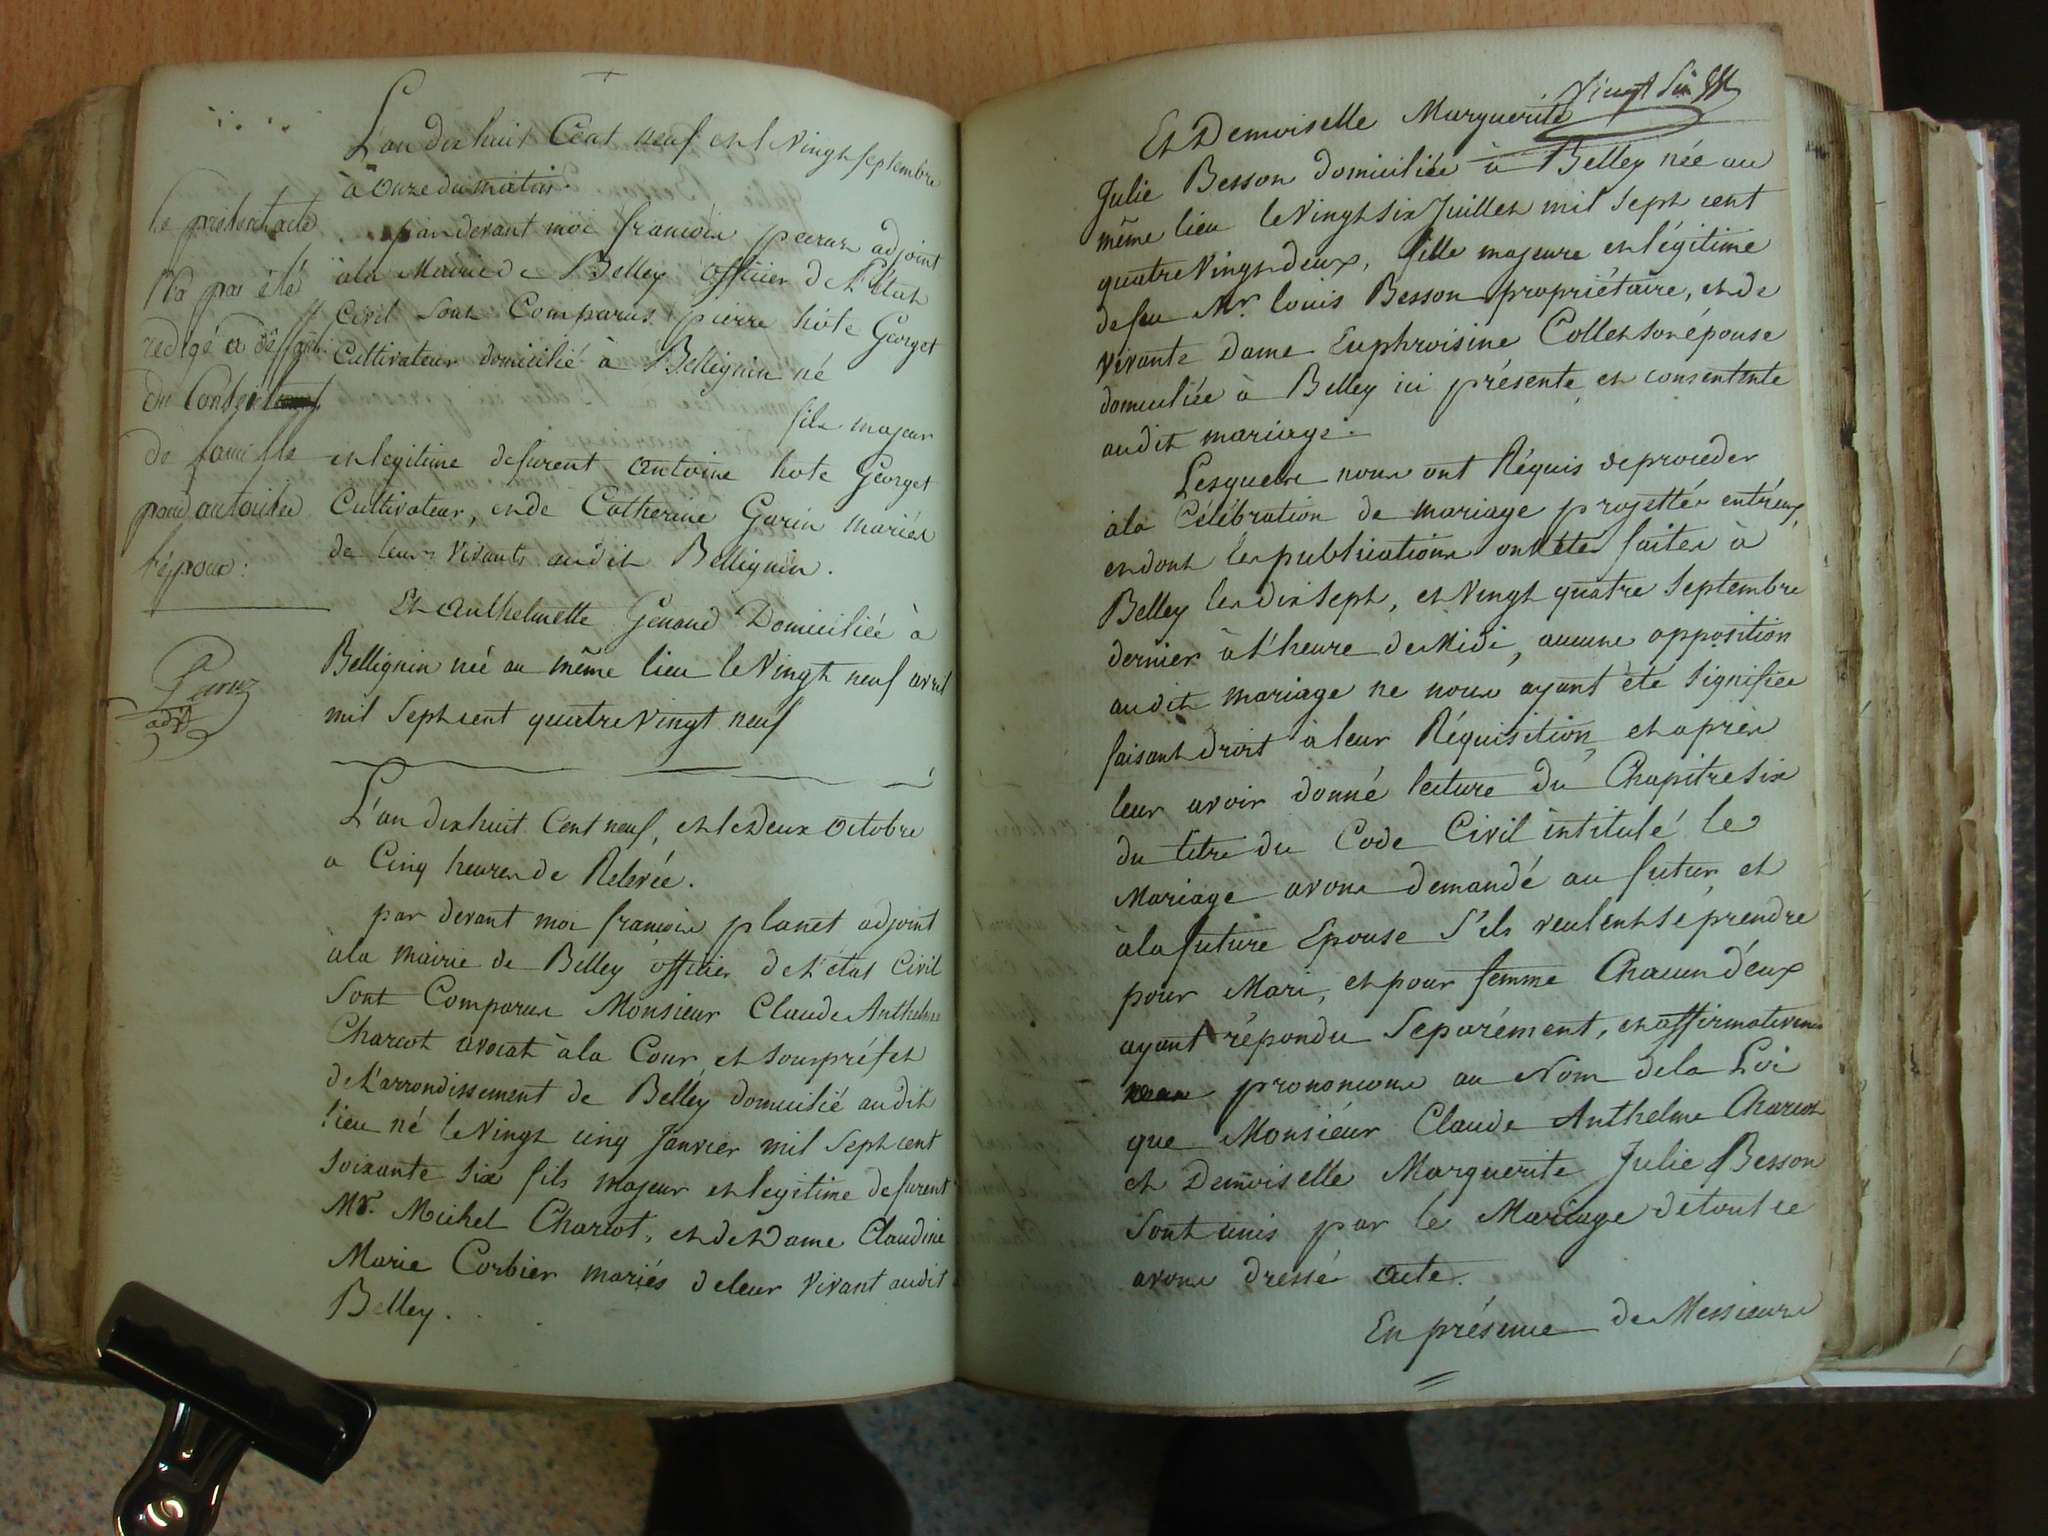 L'an dix huit Cent neuf et le Vingt septembre
à Onze du matin.
par devant moi françois adjoint
à la Mairie de Belley officier de l'état
Civil sont Comparus pierre hote Georget
Cultivateur domicilié à Bellignin né
fils majeur
et legitime defurent antoine hote Georget
Cultivateur, et de Catherine Garin mariés
de leurs vivants audit Bellignin.
Et Anthelmette Genand Domiciliée à
Bellignin née au même lieu le Vingt neuf avril
mil Sept cent quatre Vingt neuf
le présent acte
n'a pas été
redigé à deffaut
du Conseil
de famille
pour autoriser
l'épour:
adjt
L'an dix huit Cent neuf, et le deux Octobre
a Cinq heures de Relevée.
par devant moi françois planet adjoint
à la mairie de Belley officier de l'état Civil
Sont Comparus Monsieur Claude Anthelme
Charcot avocat à la Cour, et souspréfet
de l'arrondissement de Belley domicilié audit
lieu né le Vingt cinq Janvier mil Sept cent
soixante six fils majeur et legitime defurent
Mr. Michel Charcot, et de Dame Claudine
Marie Corbier mariés de leur vivant audit
Belley.
Vingt Six
Et Demoiselle Marguerite
Julie Besson domiciliée à Belley née au
même lieu le Vingt six Juillet mil Sept cent
quatre Vingt deux, fille majeure et légitime
defeu Mr. louis Besson propriétaire, et de
vivante Dame Euphroisine Collet son épouse
domiciliée à Belley ici présente, et consentente
audit mariage.
Lesquels nous ont Réquis de proceder
à la Célébration de mariage projettée entr'eux,
et dont les publications ont étés faites à
Belley les dix sept, et Vingt quatre Septembre
dernier à l'heure de Midi, aucune opposition
audit mariage ne nous ayant été signifiée
faisant droit à leur Réquisition, et après
leur avoir donné lecture du Chapitre six
du titre du Code Civil intitulé le
Mariage avons demandé au futur, et
à la future Epouse s'ils veulent se prendre
pour Mari, et pour femme Chacun d'eux
ayant répondu Séparément, et affirmativement
prononcons au Nom de la Loi
que Monsieur Claude Anthelme Charcot
et Demoiselle Marguerite Julie Besson
Sont unis par le Mariage de tout ce
avons dressé acte.
En présence de Messieurs